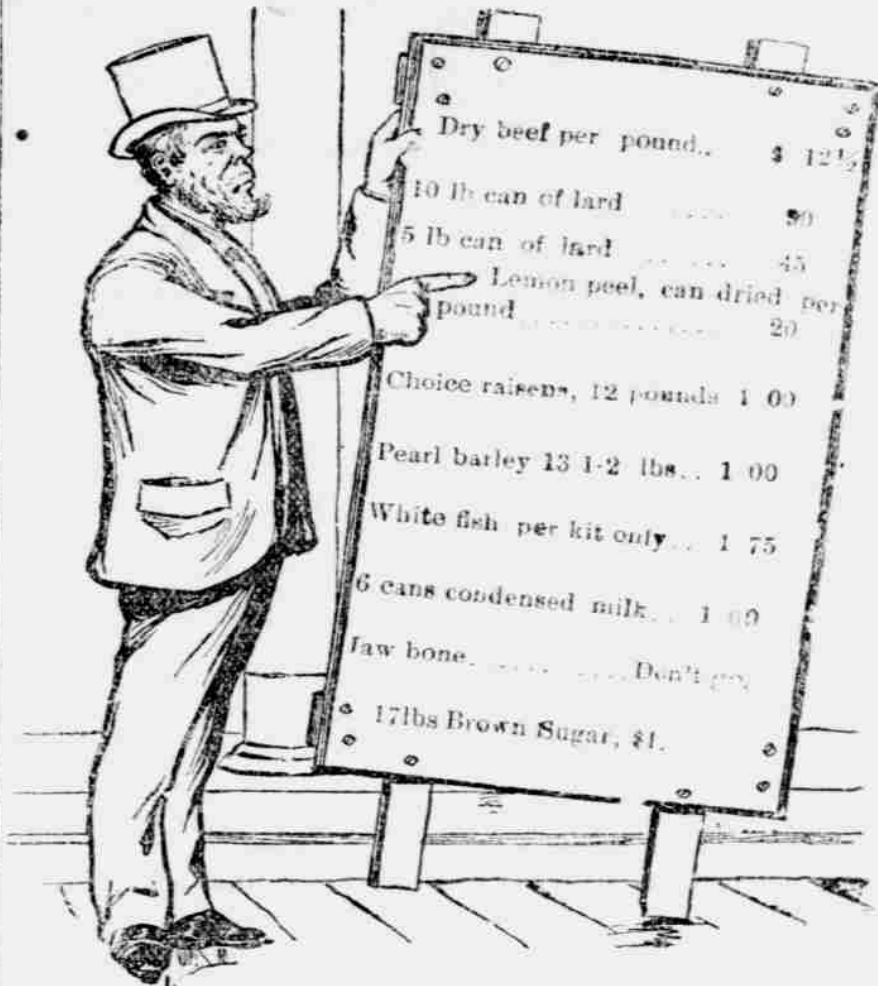 Dry beef per pound.. $ 12½
10 lb can of lard ..... 90
5 lb can of lard ...... 45
Lemon peel, can dried per
pound................ 20
Choice raisens, 12 pounds 1 00
Pearl barley 13 1-2 lbs.. 1 00
White fish per kit only... 1 75
6 cans condensed milk... 1 00
Jaw bone..........Don't
17lbs Brown Sugar, $1.